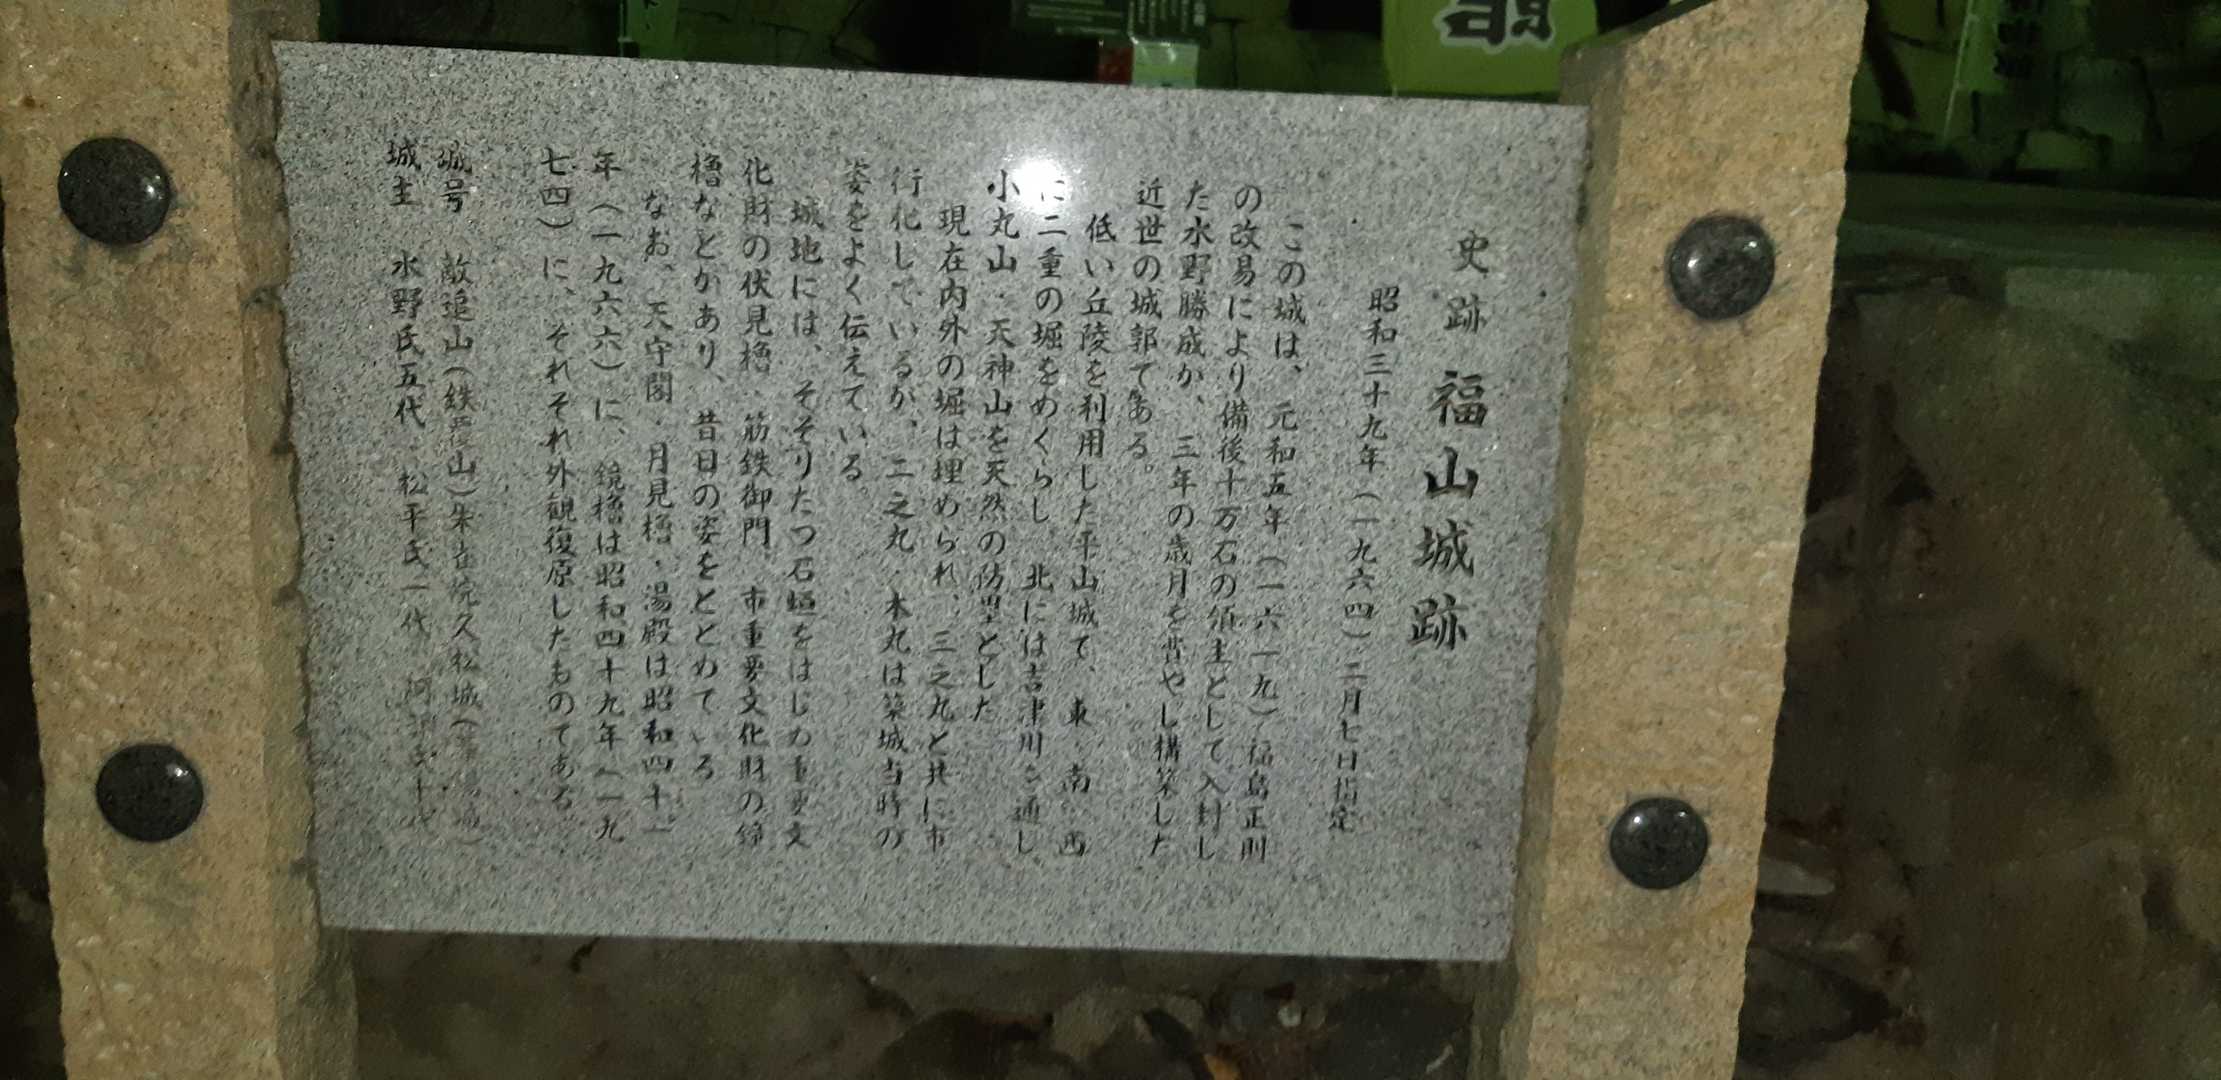 史跡 福山城跡
昭和三十九年(一九六四)二月七日指定
この城は、元和五年(一六一九)福島正則
の改易により備後十万石の領主として入封し
た水野勝成が、三年の歳月を費やし構築した
近世の城郭である。
低い丘陵を利用した平山城で、東・南・西
に二重の堀をめぐらし、北には吉津川を通し、
小丸山・天神山を天然の防塁とした
現在内外の堀は埋められ、三之丸と共に市
街化しているが、二之丸・本丸は築城当時の
姿をよく伝えている。
城地には、そそりたつ石垣をはじめ重要文
化財の伏見櫓、筋鉄御門、市重要文化財の鐘
櫓などがあり、昔日の姿をとどめている
なお、天守閣・月見櫓・湯殿は昭和四十一
年(一九六六)に、鏡櫓は昭和四十九年(一九
七四)に、それぞれ外観復原したものである。
城号 敵追山(鉄覆山)朱雀院久松城(葦陽城)
城主 水野氏五代・松平氏一代・阿部氏十代